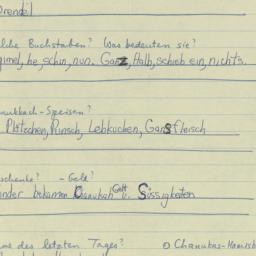 Drendil
lche Buchstaben? Was bedeuten sie?
gimel, he, schin, nun. Ganz, Halb, schieb ein, nichts.
anukkah-Speisen?
Plätzchen, Punsch, Lebkuchen, Gansfleisch
schenke? - Geld?
inder bekamen Chanukah Gelt u. Süssigkeiten
me des letzten Tages? ⊙ Chanukas-Hamish